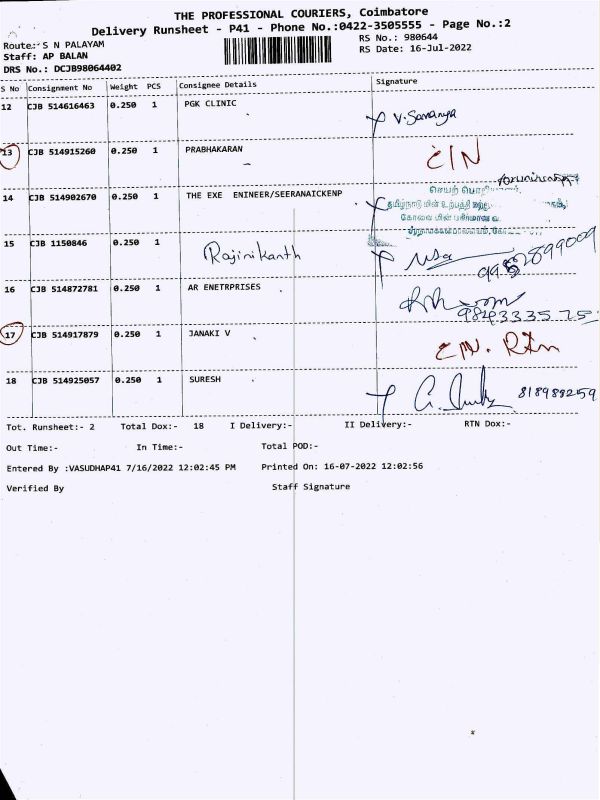 THE PROFESSIONAL COURIERS, Coimbatore
Delivery Runsheet - P41 - Phone No.:0422-3505555 - Page No.:2
Route: S N PALAYAM RS No.: 980644
Staff: AP BALAN RS Date: 16-Jul-2022
DRS No.: DCJB98064402
S No Consignment No Weight PCS Consignee Details Signature
12 CJB 514616463 0.250 1 PGK CLINIC
V. Saranya
13 CJB 514915260 0.250 1 PRABHAKARAN
C/N
14 CJB 514902670 0.250 1 THE EXE ENINEER/SEERANAICKENP
தமிழ்நாடு மின் உற்பத்தி
கோவை மின் பகிர்மான வ
15 CJB 1150846 0.250 1 Rajinikanth
16 CJB 514872781 0.250 1 AR ENETRPRISES
9843333575
17 CJB 514917879 0.250 1 JANAKI V
C/N. RTn
18 CJB 514925057 0.250 1 SURESH
818988259
Tot. Runsheet:- 2 Total Dox:- 18 I Delivery:- II Delivery:- RTN Dox:-
Out Time:- In Time:- Total POD:-
Entered By :VASUDHAP41 7/16/2022 12:02:45 PM Printed On: 16-07-2022 12:02:56
Verified By Staff Signature